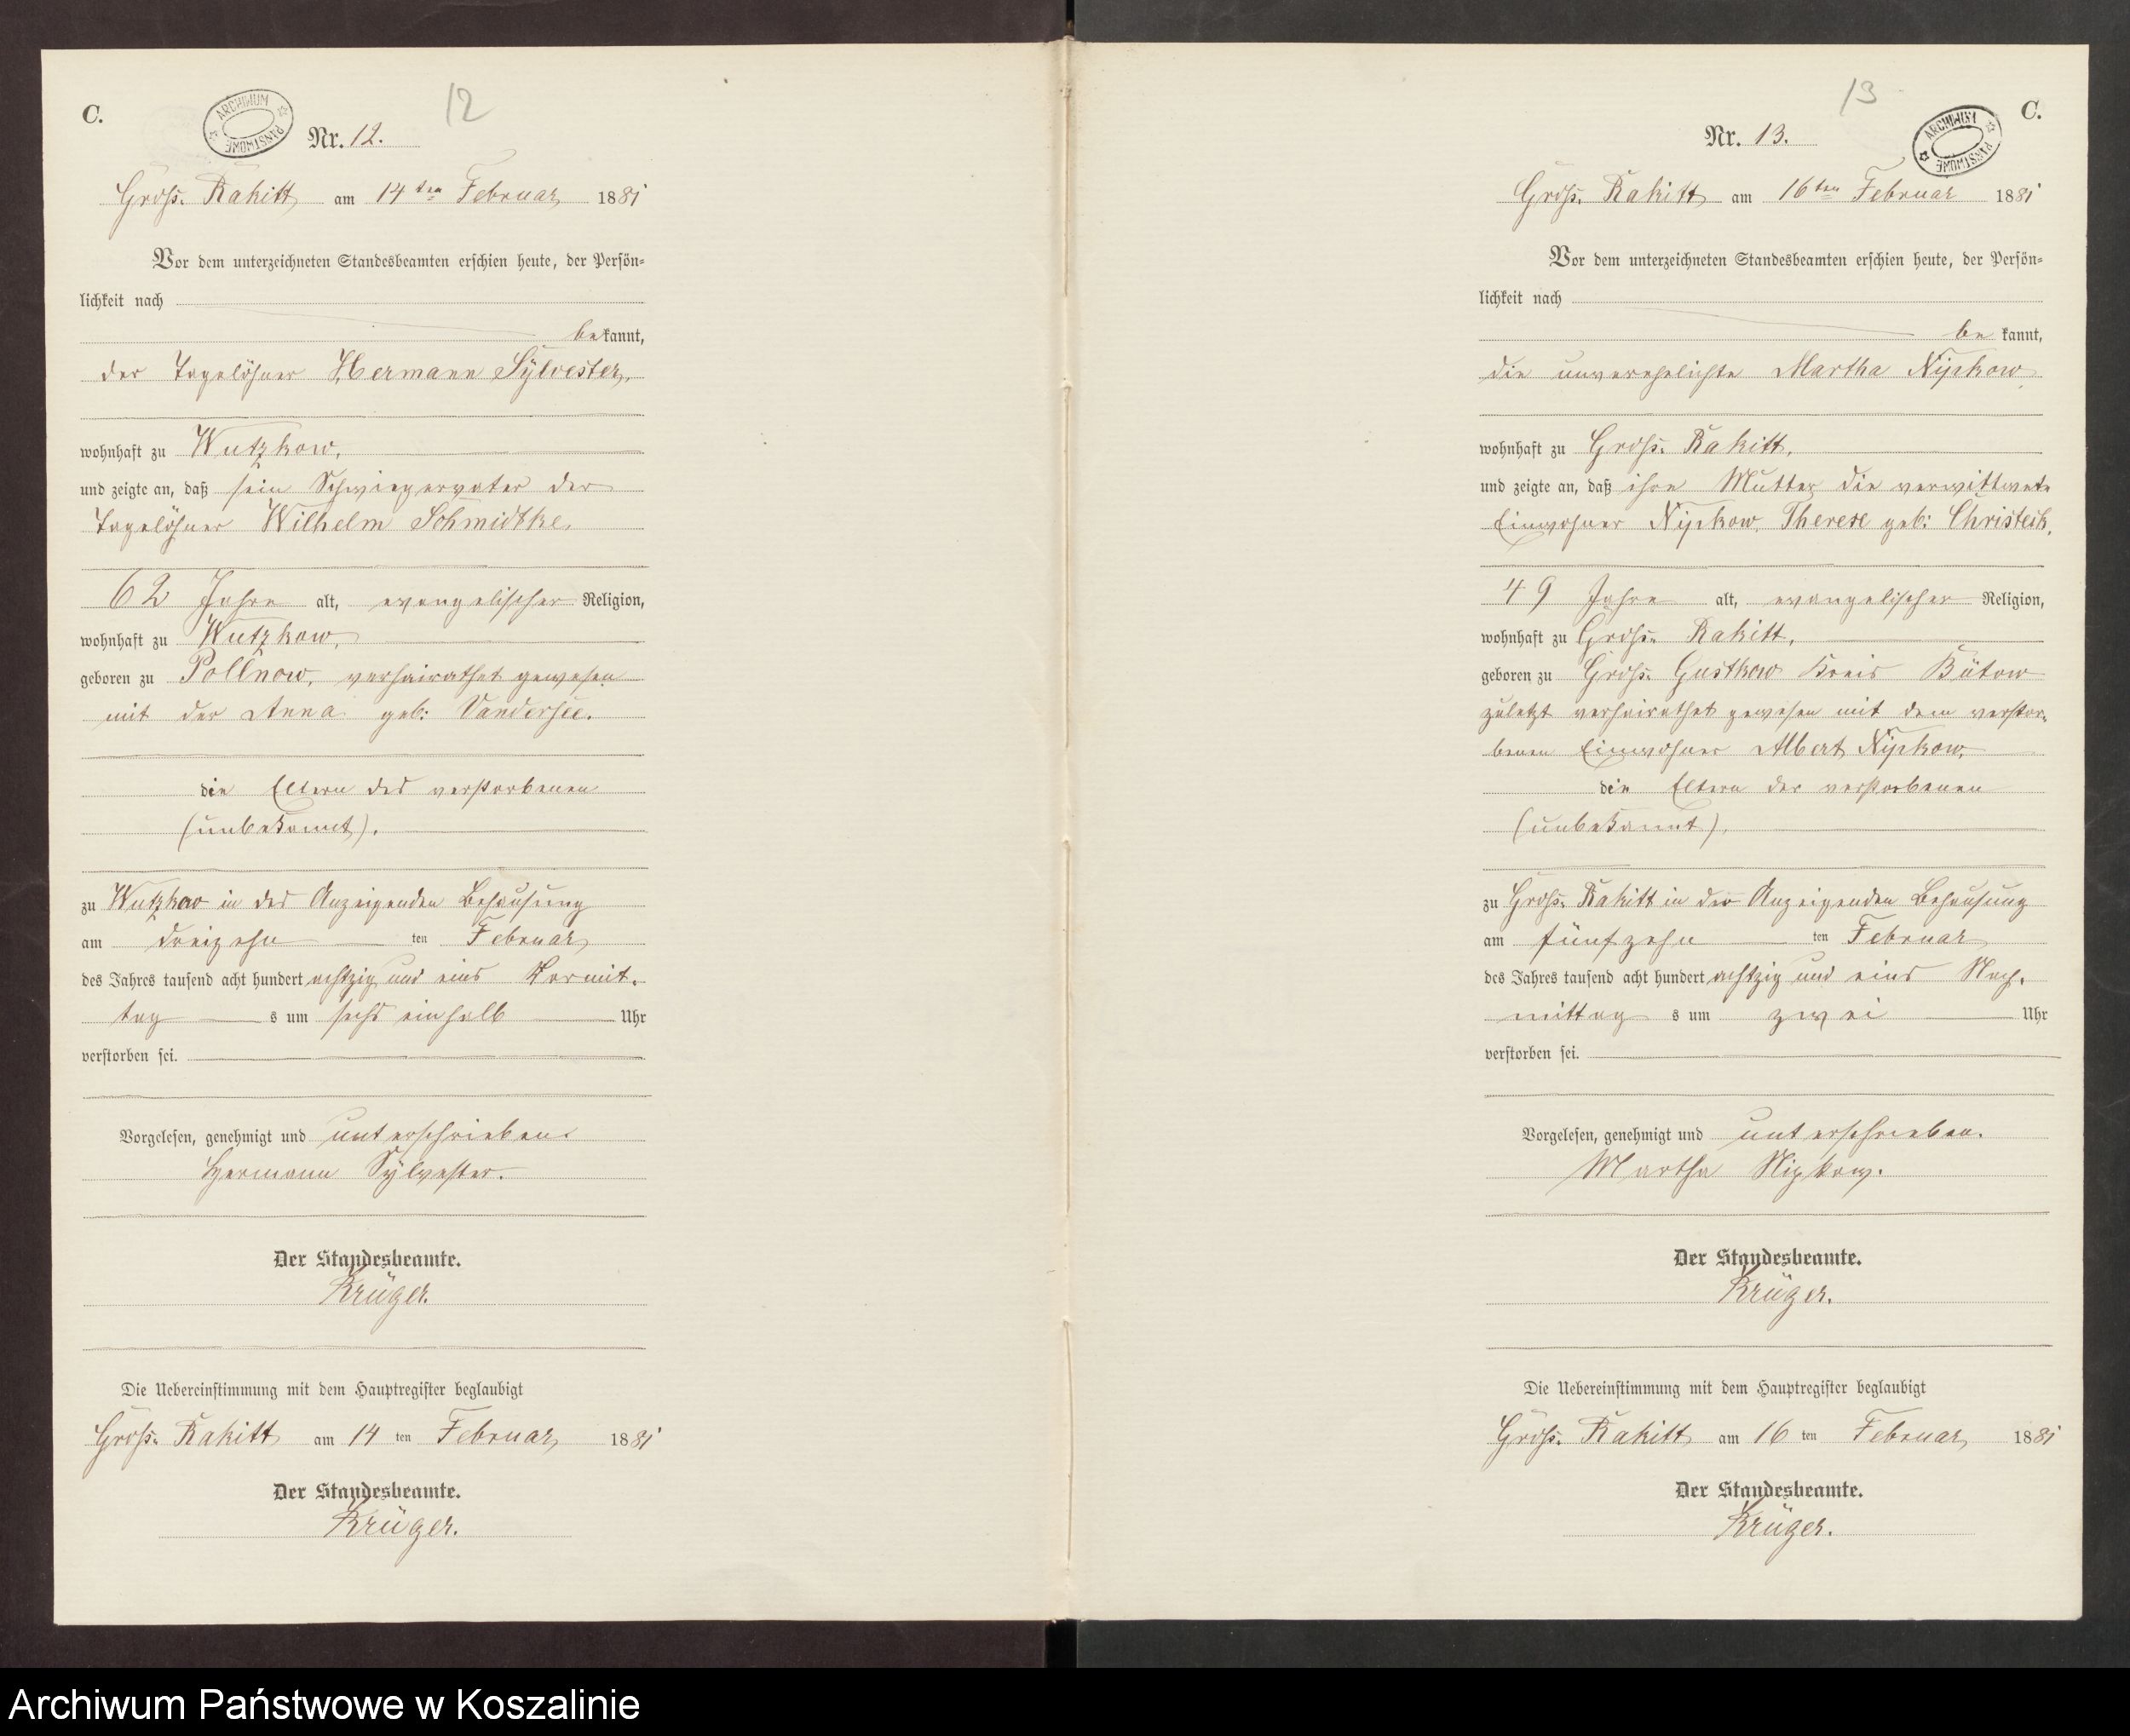 12
C.
ARCHIWUM PAŃSTWOWE
Nr. 12.
Groß. Rakitt am 14ten Februar 1881
Vor dem unterzeichneten Standesbeamten erschien heute, der Persön-
lichkeit nach
bekannt,
der Tagelöhner Hermann Sylvester,
wohnhaft zu Wutzkow,
und zeigte an, daß sein Schwiegervater der
Tagelöhner Wilhelm Schmidtke,
62 Jahre alt, evangelischer Religion,
wohnhaft zu Wutzkow,
geboren zu Pollnow, verheirathet gewesen
mit der Anna geb: Vandersee.
die Eltern des verstorbenen
(unbekannt).
zu Wutzkow in des Anzeigenden Behausung
am dreizehn ten Februar
des Jahres tausend acht hundert achtzig und eins Vormit-
tag s um sechs einhalb Uhr
verstorben sei.
Vorgelesen, genehmigt und unterschrieben.
Hermann Sylvester.
Der Standesbeamte.
Krüger.
Die Uebereinstimmung mit dem Hauptregister beglaubigt
Groß. Rakitt am 14 ten Februar 1881
Der Standesbeamte.
Krüger.
13
C.
ARCHIWUM PAŃSTWOWE
Nr. 13.
Groß. Rakitt am 16ten Februar 1881
Vor dem unterzeichneten Standesbeamten erschien heute, der Persön-
lichkeit nach
be kannt,
die unverehelichte Martha Nipkow
wohnhaft zu Groß. Rakitt,
und zeigte an, daß ihre Mutter die verwittwete
Einwohner Nipkow, Therese geb: Christeck,
49 Jahre alt, evangelischer Religion,
wohnhaft zu Groß. Rakitt,
geboren zu Groß. Gustkow Kreis Bütow
zuletzt verheirathet gewesen mit dem verstor-
benen Einwohner Albert Nipkow,
die Eltern der verstorbenen
(unbekannt),
zu Groß. Rakitt in der Anzeigenden Behausung
am fünfzehn ten Februar
des Jahres tausend acht hundert achtzig und eins Nach-
mittag s um zwei Uhr
verstorben sei.
Vorgelesen, genehmigt und unterschrieben.
Martha Nipkow.
Der Standesbeamte.
Krüger.
Die Uebereinstimmung mit dem Hauptregister beglaubigt
Groß. Rakitt am 16 ten Februar 1881
Der Standesbeamte.
Krüger.
Archiwum Państwowe w Koszalinie